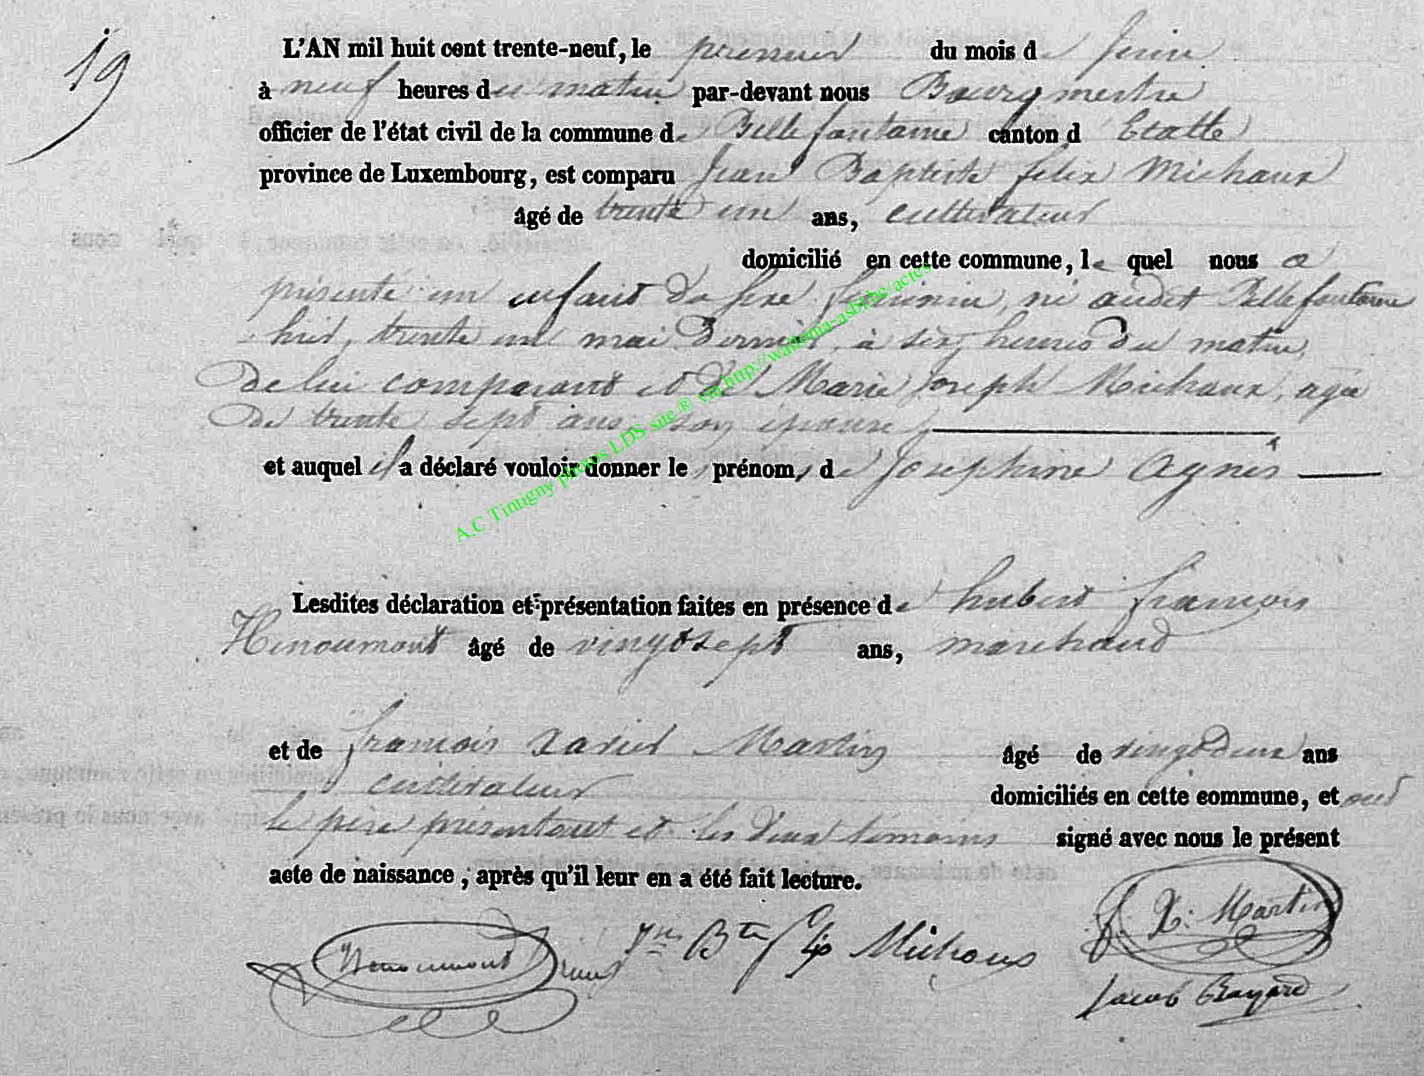 19
L'AN mil huit cent trente-neuf, le premier du mois de juin
à neuf heures du matin par-devant nous Bourgmestre
officier de l'état civil de la commune de Bellefontaine canton d Etalle
province de Luxembourg, est comparu Jean Baptiste felix Michaux
âgé de trente un ans, cultivateur
domicilié en cette commune, le quel nous a
présenté un enfant du sexe féminin, né audit Bellefontaine
hier, trente un mai dernier, à six heures du matin,
de lui comparant et de Marie Joseph Michaux, agée
de trente sept ans son épouse
et auquel il a déclaré vouloir donner le prénom de Josephine Agnès
Lesdites déclaration et présentation faites en présence de hubert françois
Henoumont âgé de vingt sept ans, marchand
et de françois Xavier Martin âgé de vingt deux ans
cultivateur domiciliés en cette commune, et ont
le père présentant et les deux témoins signé avec nous le présent
acte de naissance, après qu'il leur en a été fait lecture.
Henoumont Jn Bte Michaux f. X. Martin
Jacob Bayard
A.C Tintigny photos LDS site ® via http://wallonia-asbl.be/actes